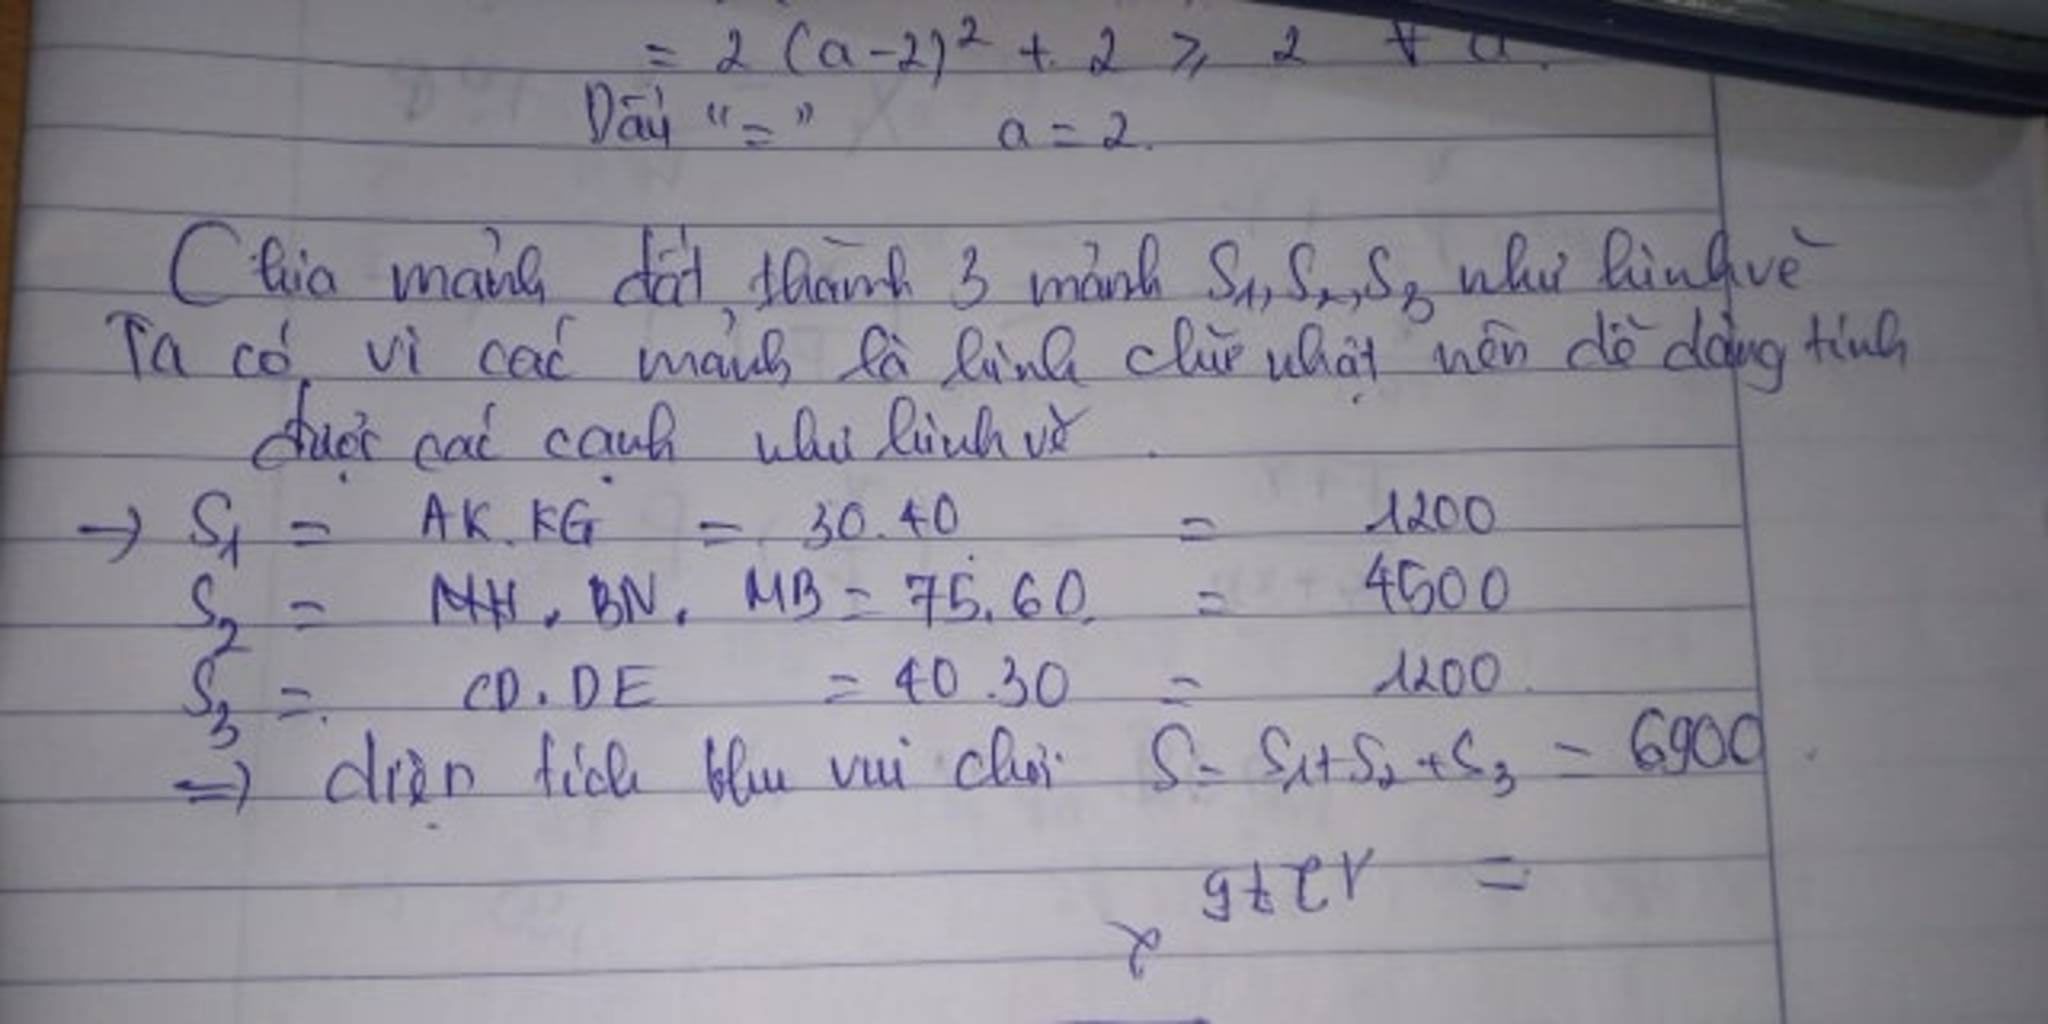 = 2 (a-2)² + 2 ⩾ 2 ∀ a.
Dấu "=" a = 2.
Chia mảnh đất thành 3 mảnh S1, S2, S3 như hình vẽ
Ta có vì các mảnh là hình chữ nhật nên dễ dàng tính
được các cạnh như hình vẽ.
→ S1 = AK.KG = 30.40 = 1200
S2 = BN. MB = 75.60. = 4500
S3 = CD.DE = 40.30 = 1200.
⇒ diện tích khu vui chơi S = S1+S2+S3 = 6900